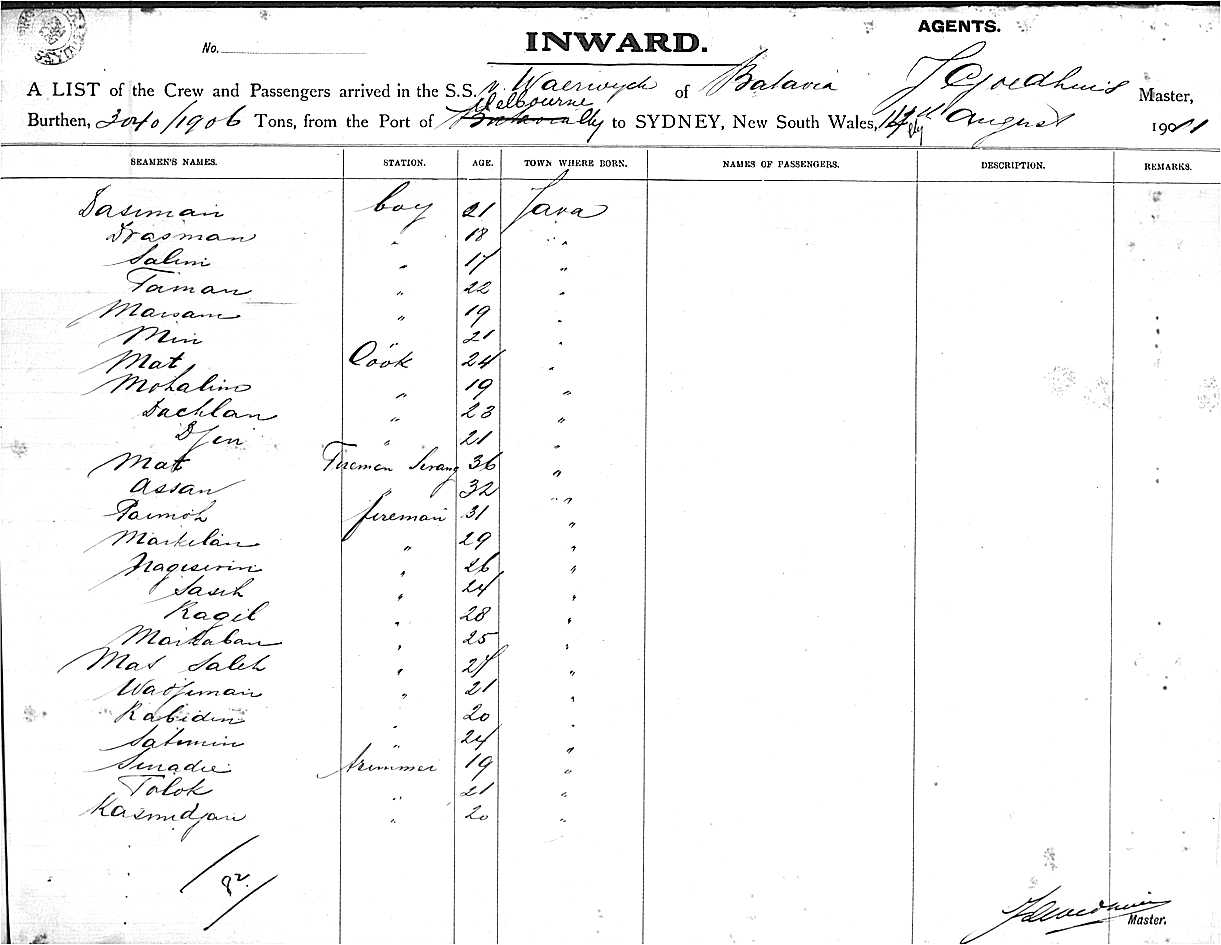 AGENTS.
No.
INWARD.
A LIST of the Crew and Passengers arrived in the S.S. v. Waerwyck of Batavia J Goedhuis Master,
Burthen, 3040/1906 Tons, from the Port of Melbourne to SYDNEY, New South Wales, August 1911
SEAMEN'S NAMES. STATION. AGE. TOWN WHERE BORN. NAMES OF PASSENGERS. DESCRIPTION. REMARKS.
Dasiman boy 21 Java
Drasman " 18 " "
Salim " 17 "
Taman " 22 "
Marsam " 19 "
Min " 21 "
Mat Cook 24 "
Mohalim " 19 "
Dachlan " 23 "
Djen " 21 "
Mat Firemen Serang 36 "
Assan 32 " "
Paimoh fireman 31 "
Markelan " 29 "
" 26 "
Sasih " 24 "
Ragil " 28 "
Markaban " 25 "
Mas Saleh " 27 "
Wadjiman " 21 "
Rabidin 20 "
Satimin " 24 "
Sinadie trimmer 19 "
Tolok " 21 "
Kasmidjan " 20 "
/82./
J Goedhuis
Master.